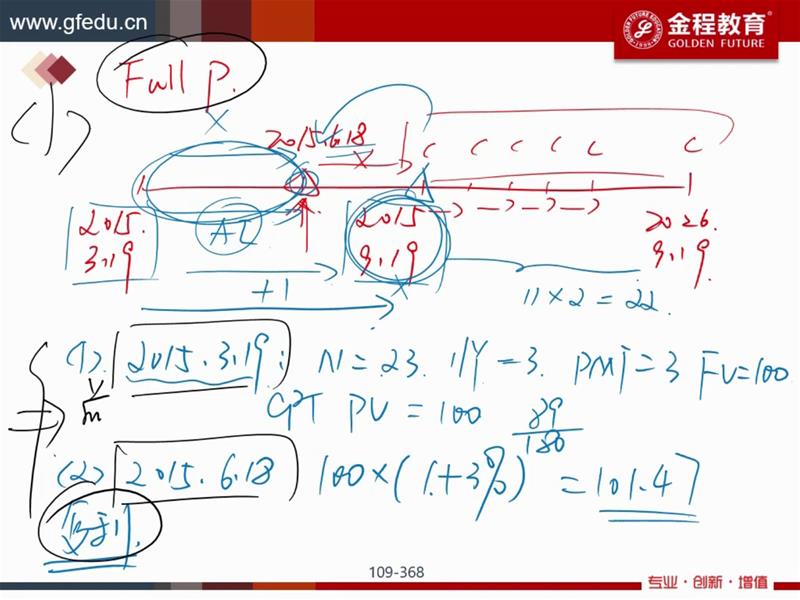 www.gfedu.cn
金程教育
GOLDEN FUTURE
Full P.
(1)
X
2015.6.18
X
C C C C C C
AI
2015.
3.19
2015
9.19
2026.
9.19
+1
X
11×2=22.
(1). 2015.3.19: N=23. I/Y=3. PMT=3 FV=100
CPT PV=100
89
180
(2) 2015.6.18 100×(1+3%) =101.47
复利.
109-368
专业·创新·增值